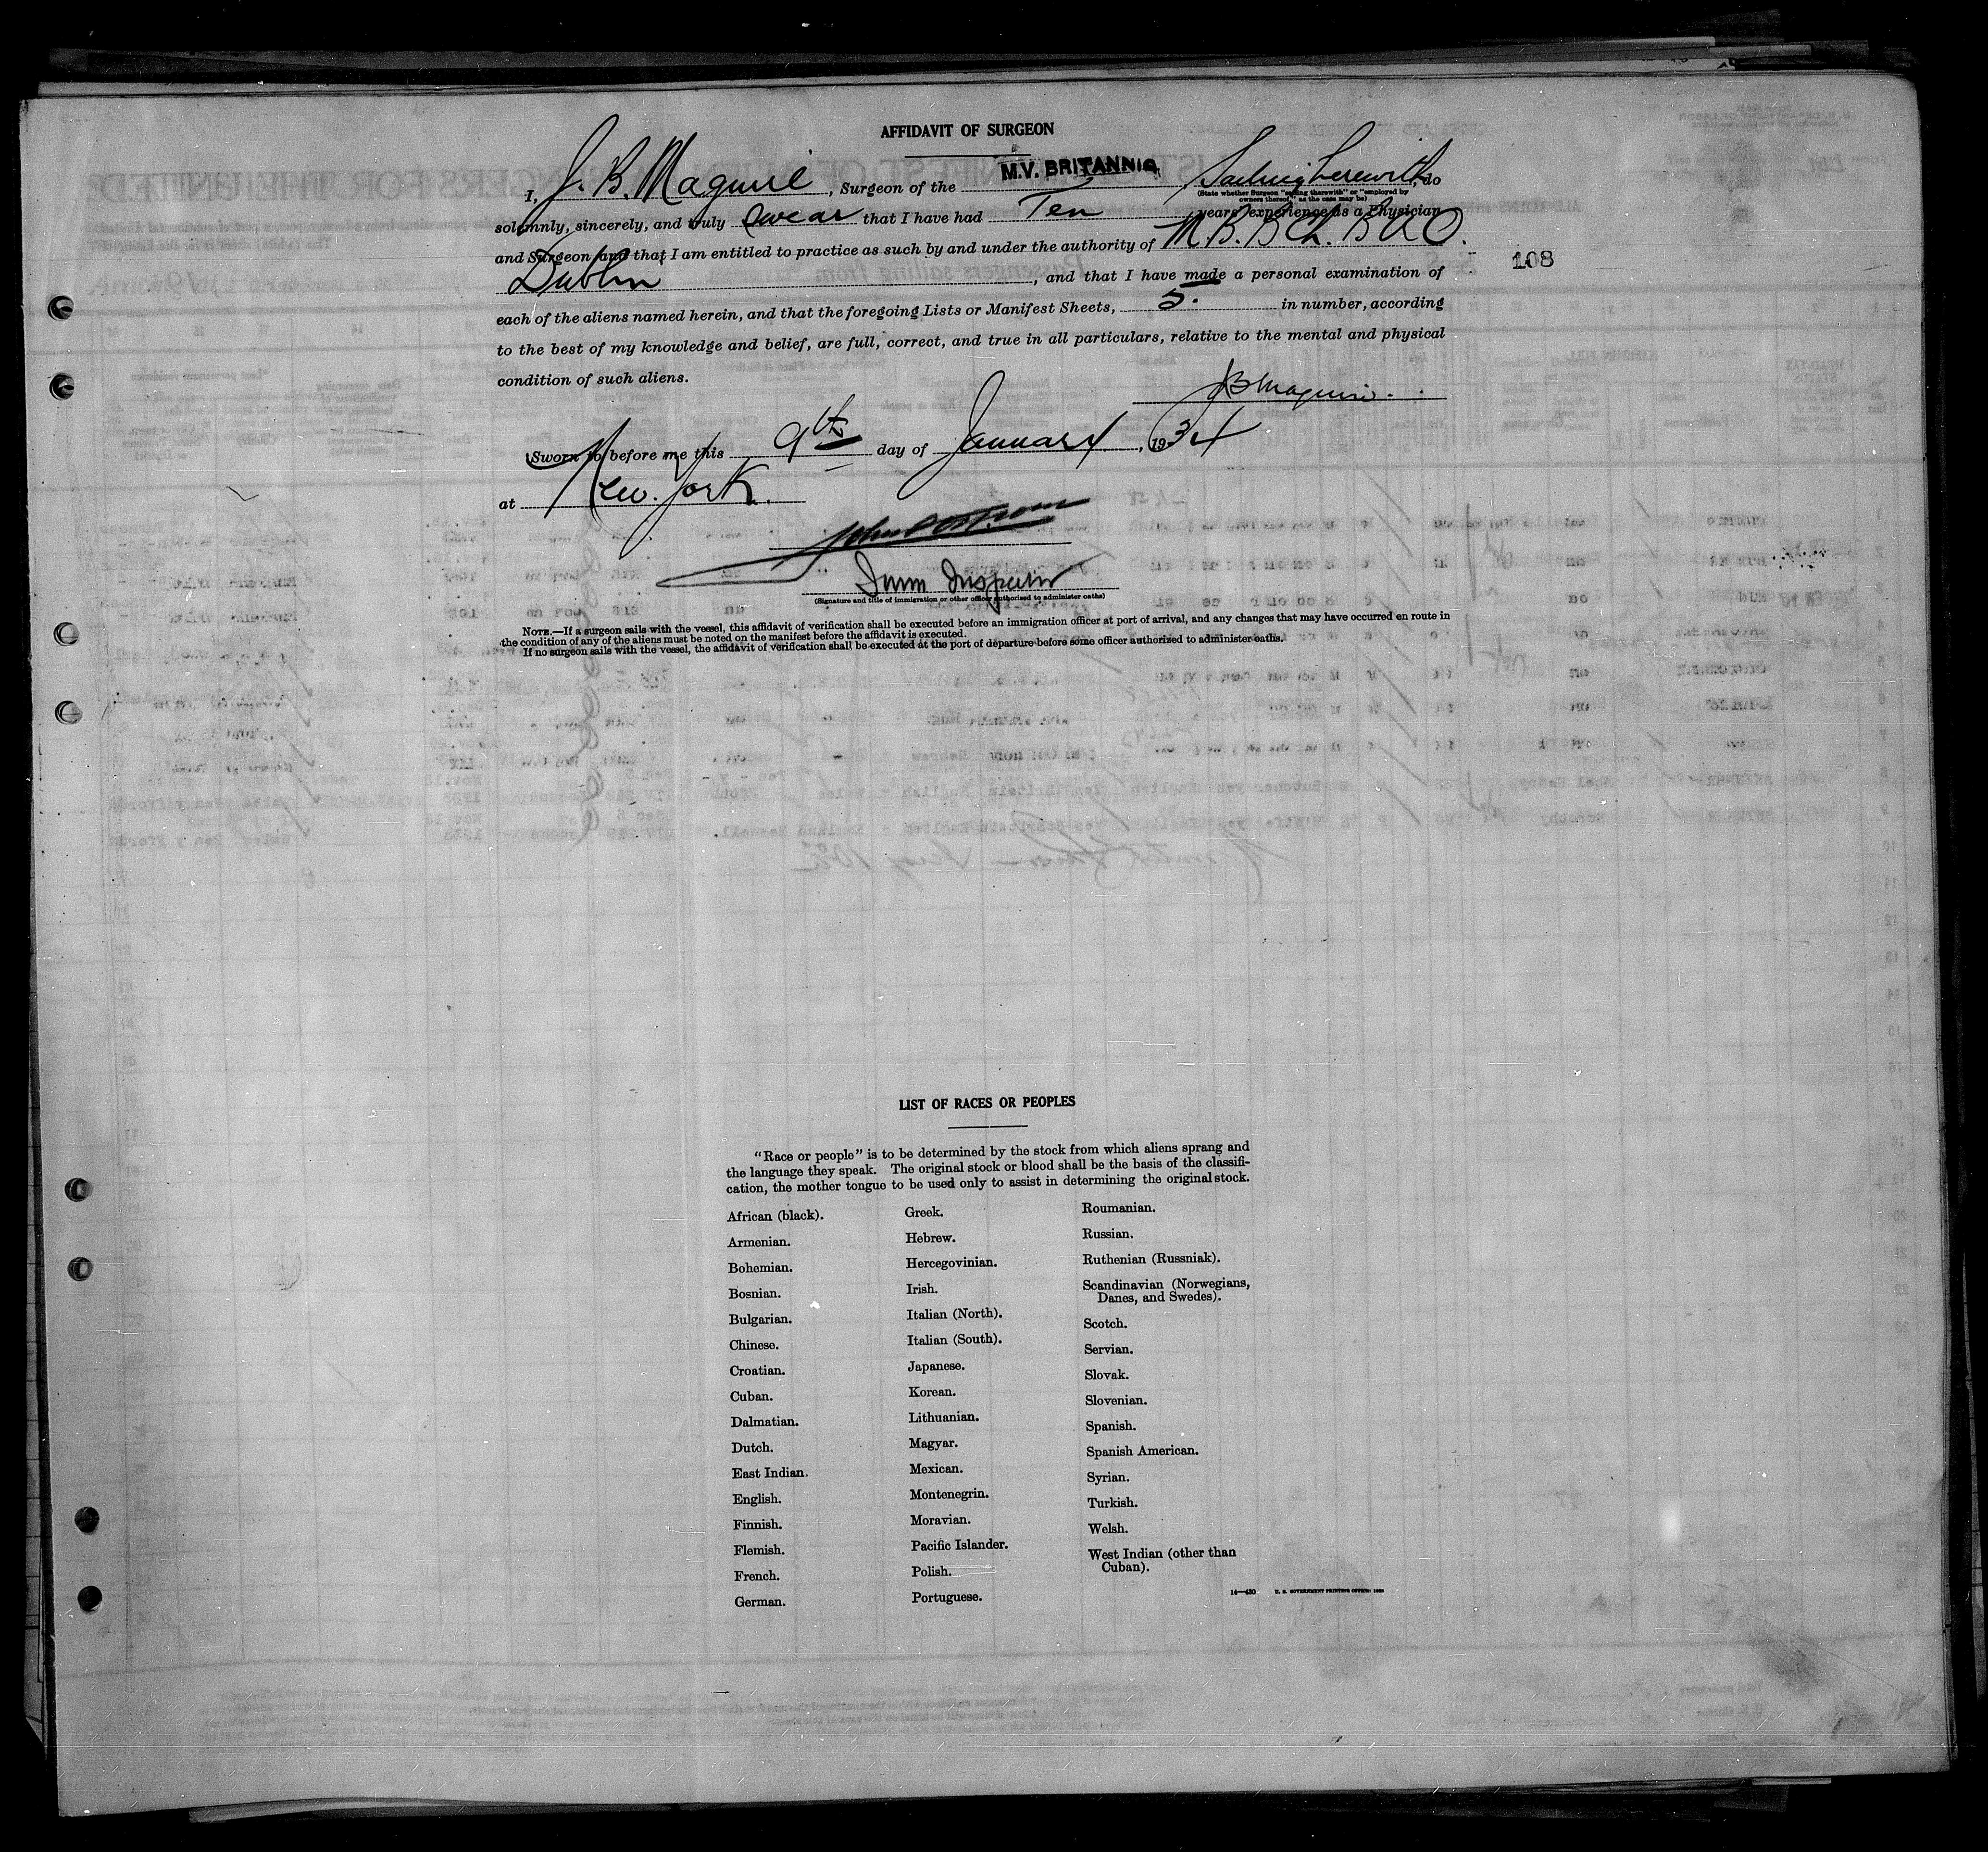 AFFIDAVIT OF SURGEON
I, J. B. Maguire, Surgeon of the M.V. BRITANNIC, Sailing therewith, do
(State whether Surgeon "sailing therewith" or "employed by
owners thereof," as the case may be)
solemnly, sincerely, and truly swear that I have had Ten years' experience as a Physician
and Surgeon and that I am entitled to practice as such by and under the authority of M.B. B Ch. B A O.
Dublin, and that I have made a personal examination of
108
each of the aliens named herein, and that the foregoing Lists or Manifest Sheets, 5. in number, according
to the best of my knowledge and belief, are full, correct, and true in all particulars, relative to the mental and physical
condition of such aliens.
JB Maguire.
Sworn to before me this 9th day of January, 1934
at New York.
Imm Inspector
(Signature and title of immigration or other officer authorized to administer oaths)
NOTE.—If a surgeon sails with the vessel, this affidavit of verification shall be executed before an immigration officer at port of arrival, and any changes that may have occurred en route in
the condition of any of the aliens must be noted on the manifest before the affidavit is executed.
If no surgeon sails with the vessel, the affidavit of verification shall be executed at the port of departure before some officer authorized to administer oaths.
LIST OF RACES OR PEOPLES
"Race or people" is to be determined by the stock from which aliens sprang and
the language they speak. The original stock or blood shall be the basis of the classifi-
cation, the mother tongue to be used only to assist in determining the original stock.
African (black).
Armenian.
Bohemian.
Bosnian.
Bulgarian.
Chinese.
Croatian.
Cuban.
Dalmatian.
Dutch.
East Indian.
English.
Finnish.
Flemish.
French.
German.
Greek.
Hebrew.
Hercegovinian.
Irish.
Italian (North).
Italian (South).
Japanese.
Korean.
Lithuanian.
Magyar.
Mexican.
Montenegrin.
Moravian.
Pacific Islander.
Polish.
Portuguese.
Roumanian.
Russian.
Ruthenian (Russniak).
Scandinavian (Norwegians,
Danes, and Swedes).
Scotch.
Servian.
Slovak.
Slovenian.
Spanish.
Spanish American.
Syrian.
Turkish.
Welsh.
West Indian (other than
Cuban).
14—430 U. S. GOVERNMENT PRINTING OFFICE: